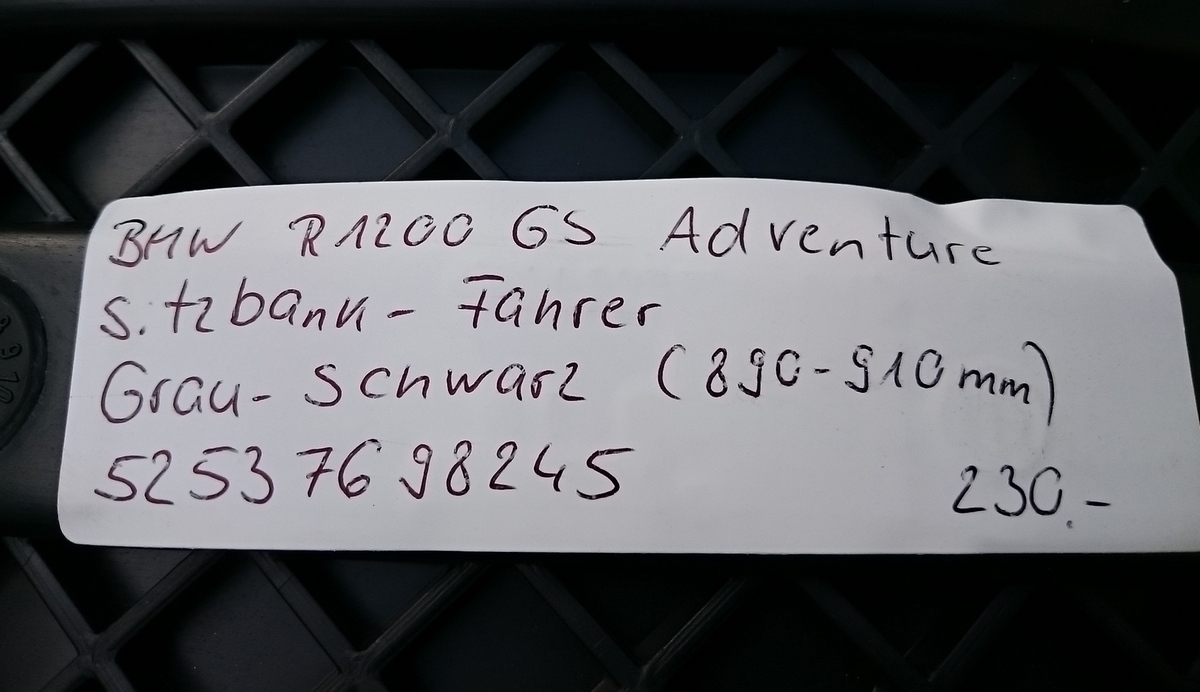 BMW R1200 GS Adventure
Sitzbank - Fahrer
Grau - Schwarz (890-910mm)
52537698245 230.-